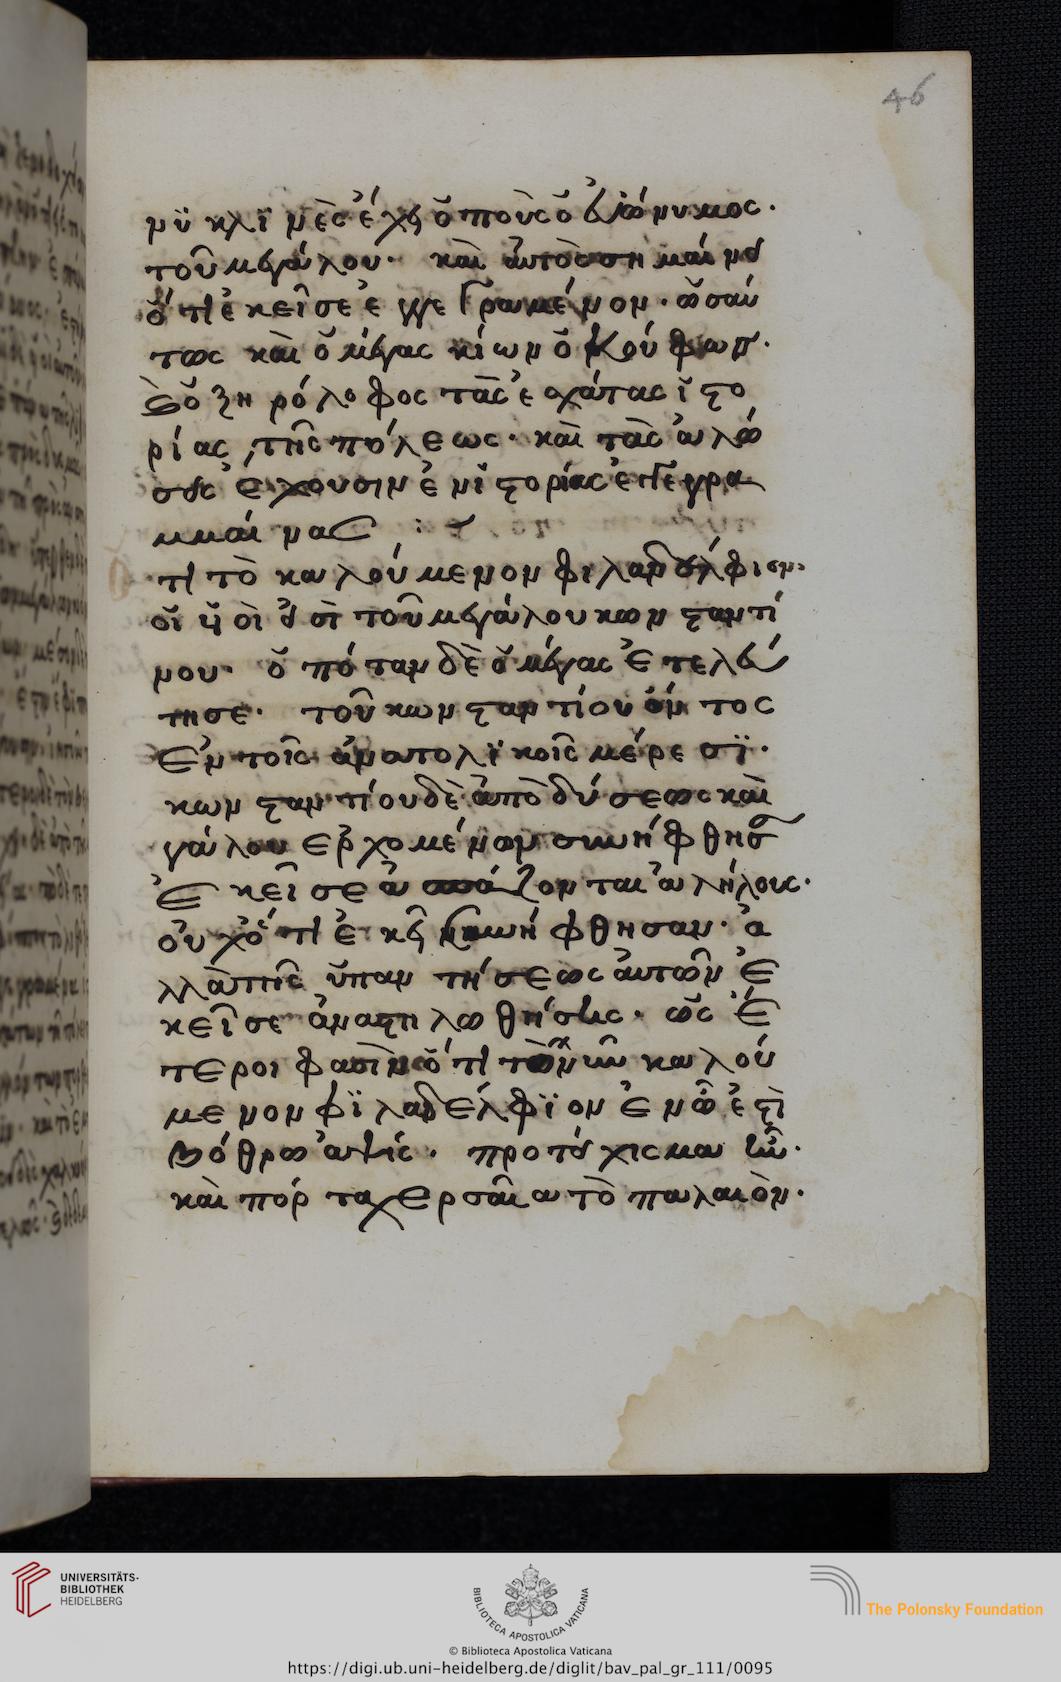 46
μϋ κλϊ μὲς ἔχει ὁ ποὺς ὁ εὐώνυμος.
τοῦ μεγάλου. καὶ αὐτὸ σημαίνει
ὅτι ἐκεῖσε ἐγγεγραμένον. ὡσαύ
τως καὶ ὁ μέγας κίων ὁ κούφων.
ὁ ξηρόλοφος τὰς ἐσχάτας ἱστο
ρίας τῆς πόλεως. καὶ τὰς ἁλώ
σεις ἔχουσιν ἐνϊστορίας ἐγγεγρα
μμαίνας
τὶ τὸ καλούμενον φιλαδέλφιον
οἱ υἱοὶ εἰσὶ τοῦ μεγάλου κωνσταντί
νου. ὁπόταν δὲ ὁ μέγας ἐτελεύ
τησε. τοῦ κωνσταντίου ὄντος
ἐν τοῖς ἀνατολϊκοῖς μέρεσϊ.
κωνσταντίου δὲ ἀπὸ δύσεως καὶ
γάλου ἐρχομένων συνήφθησαν
ἐκεῖσε ἀσπάζονται ἀλλήλοις.
οὐχ ὅτι ἐκεῖ συνήφθησαν. ἀ
λλὰ τῆς ὑπαντήσεως αὐτῶν ἐ
κεῖσε ἀναστηλωθήσεις. ὡς ἕ
τεροι φασὶν ὅτι τὸ νῦν καλού
μενον φϊλαδέλφϊον ἐν ᾧ ἐστὶ
βόθρω αὐλίς. προτείχισμα ἦν.
καὶ πόρτα χερσαία τὸ παλαιὸν.
UNIVERSITÄTS-
BIBLIOTHEK
HEIDELBERG
BIBLIOTECA APOSTOLICA VATICANA
The Polonsky Foundation
© Biblioteca Apostolica Vaticana
https://digi.ub.uni-heidelberg.de/diglit/bav_pal_gr_111/0095